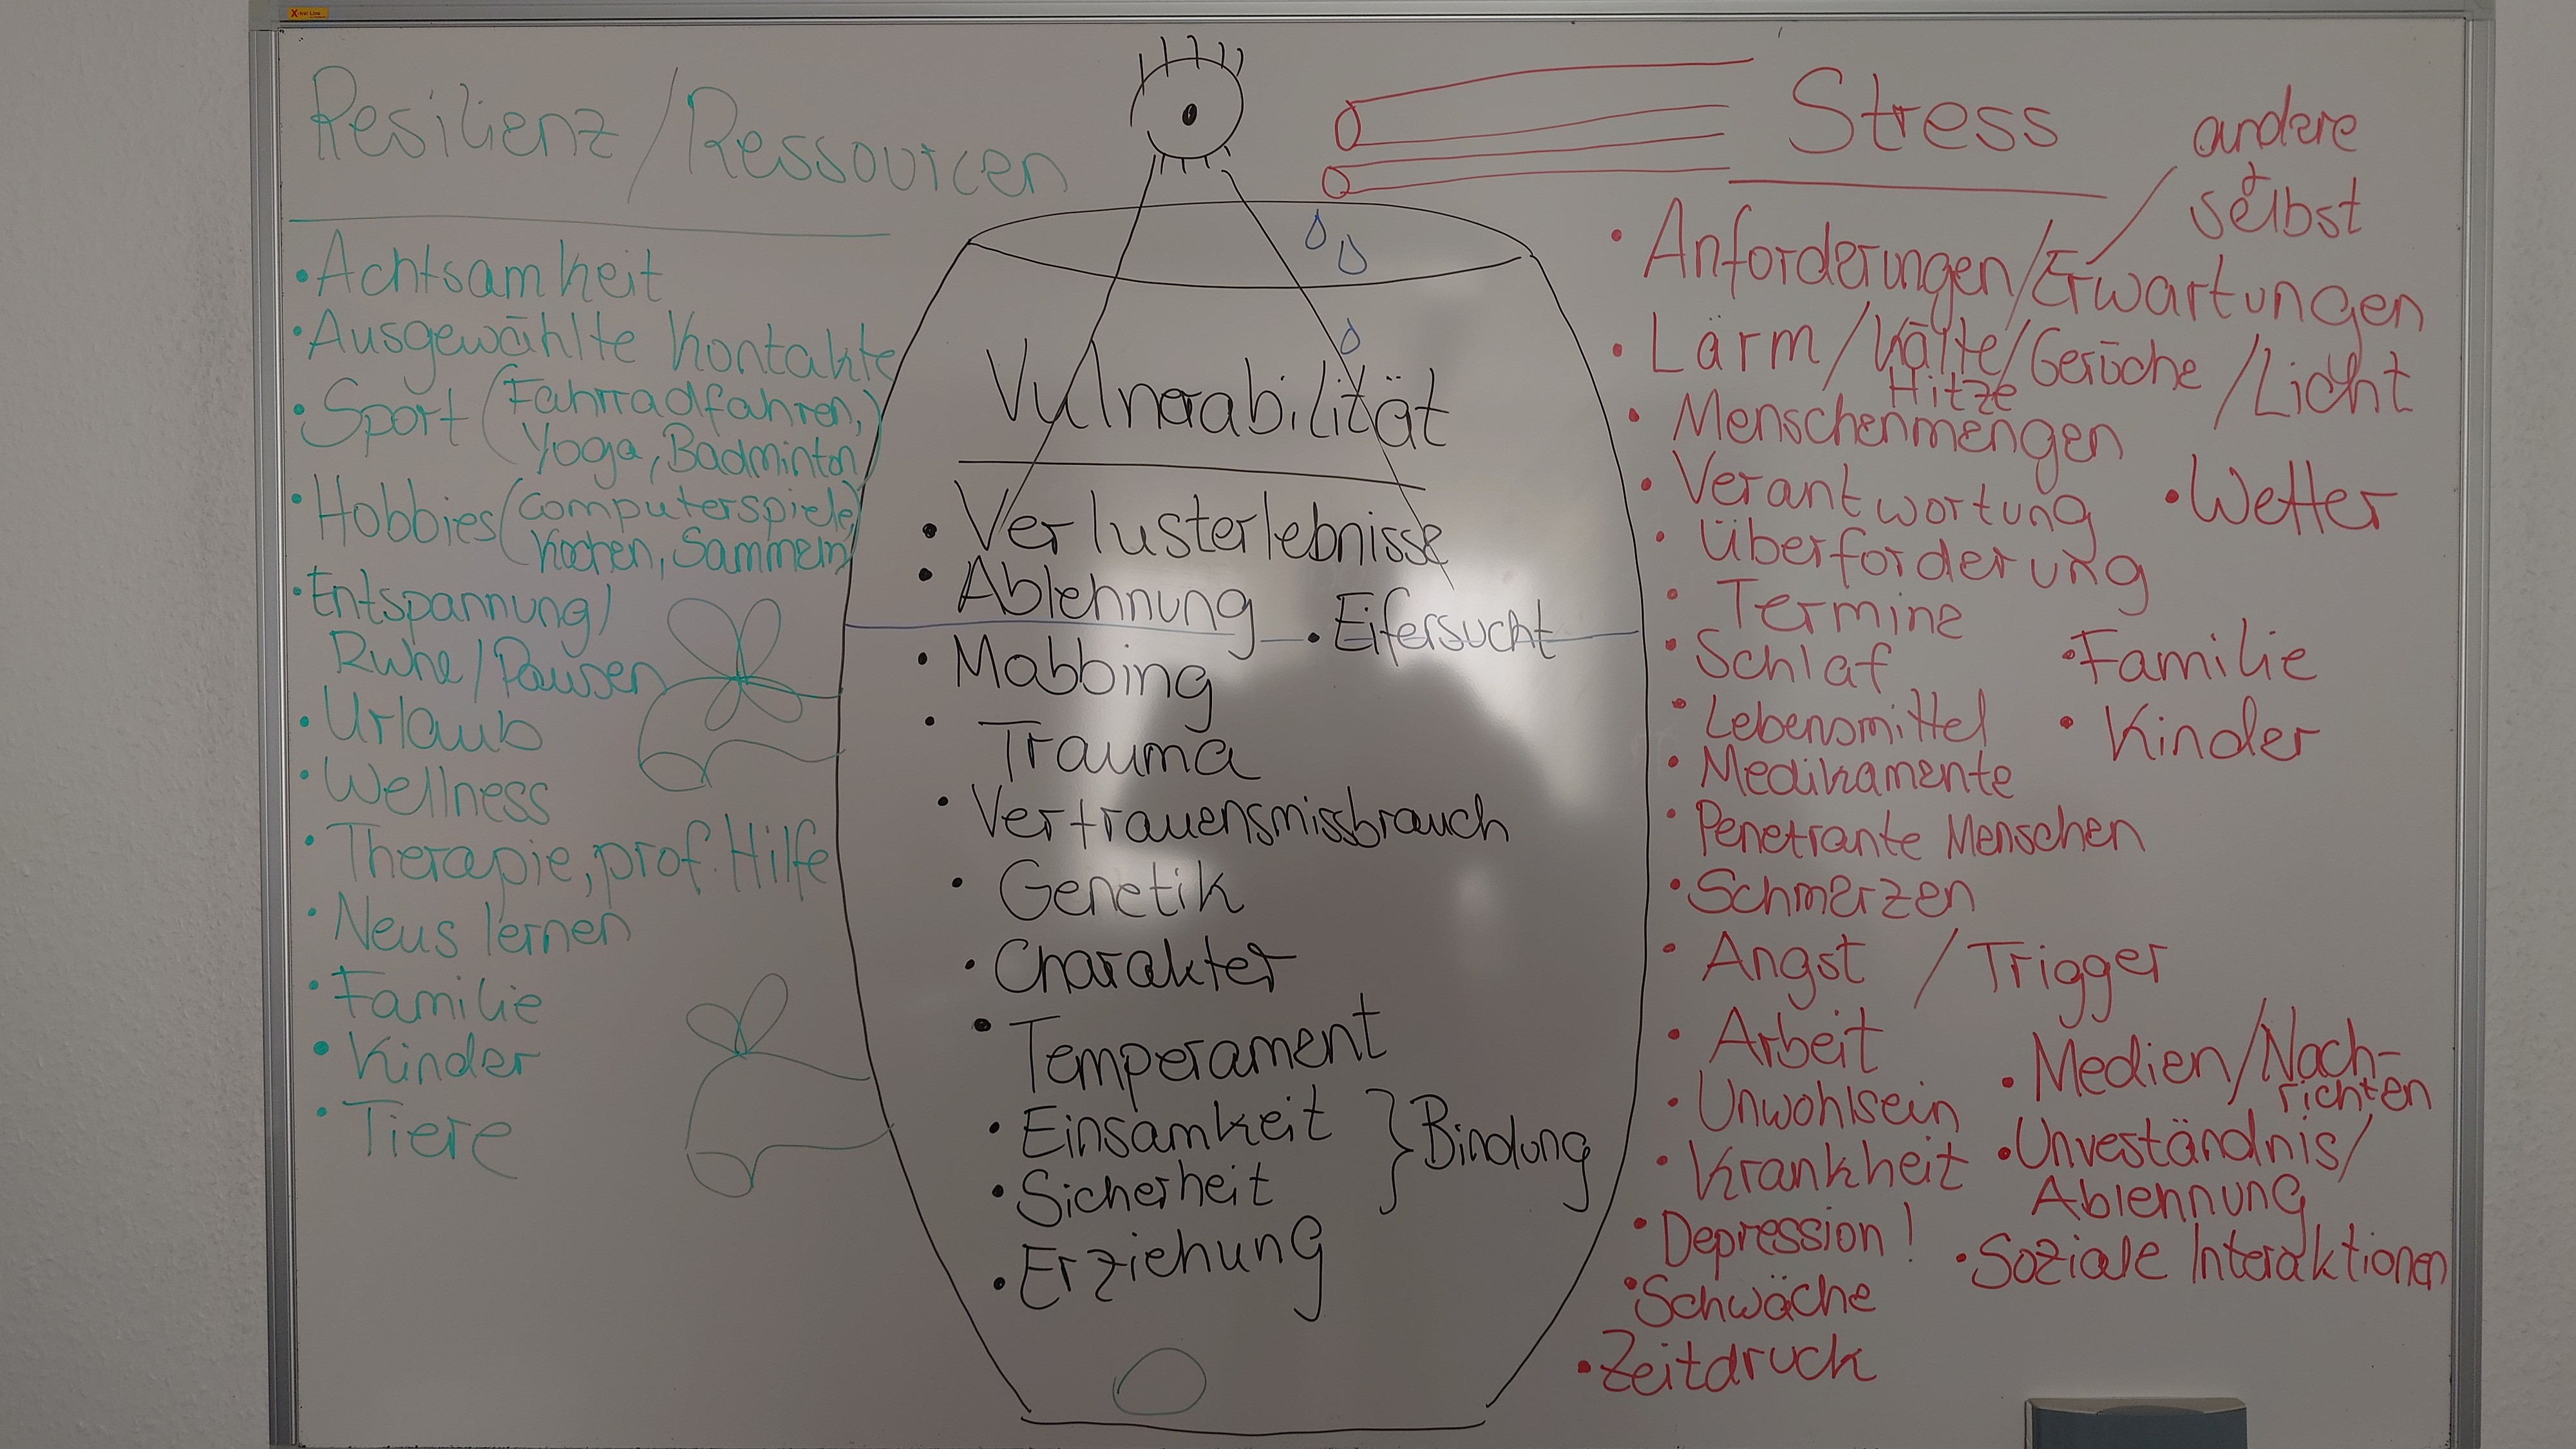 X-tra! Line
Resilienz/Ressourcen
• Achtsamkeit
• Ausgewählte Kontakte
• Sport (Fahrradfahren,
Yoga, Badminton)
• Hobbies (Computerspiele,
Kochen, Sammeln)
• Entspannung/
Ruhe/Pausen
• Urlaub
• Wellness
• Therapie, prof. Hilfe
• Neus lernen
• Familie
• Kinder
• Tiere
Vulnerabilität
• Verlusterlebnisse
• Ablehnung
• Eifersucht
• Mobbing
• Trauma
• Vertrauensmissbrauch
• Genetik
• Charakter
• Temperament
• Einsamkeit
• Sicherheit
} Bindung
• Erziehung
Stress
andere
+
selbst
• Anforderungen/Erwartungen
• Lärm/Kälte/Gerüche/Licht
Hitze
• Menschenmengen
• Verantwortung
• Wetter
• Überforderung
• Termine
• Schlaf
• Familie
• Lebensmittel
• Kinder
• Medikamente
• Penetrante Menschen
• Schmerzen
• Angst / Trigger
• Arbeit
• Medien/Nach-
richten
• Unwohlsein
• Unveständnis/
Ablehnung
• Krankheit
• Depression!
• Soziale Interaktionen
• Schwäche
• Zeitdruck